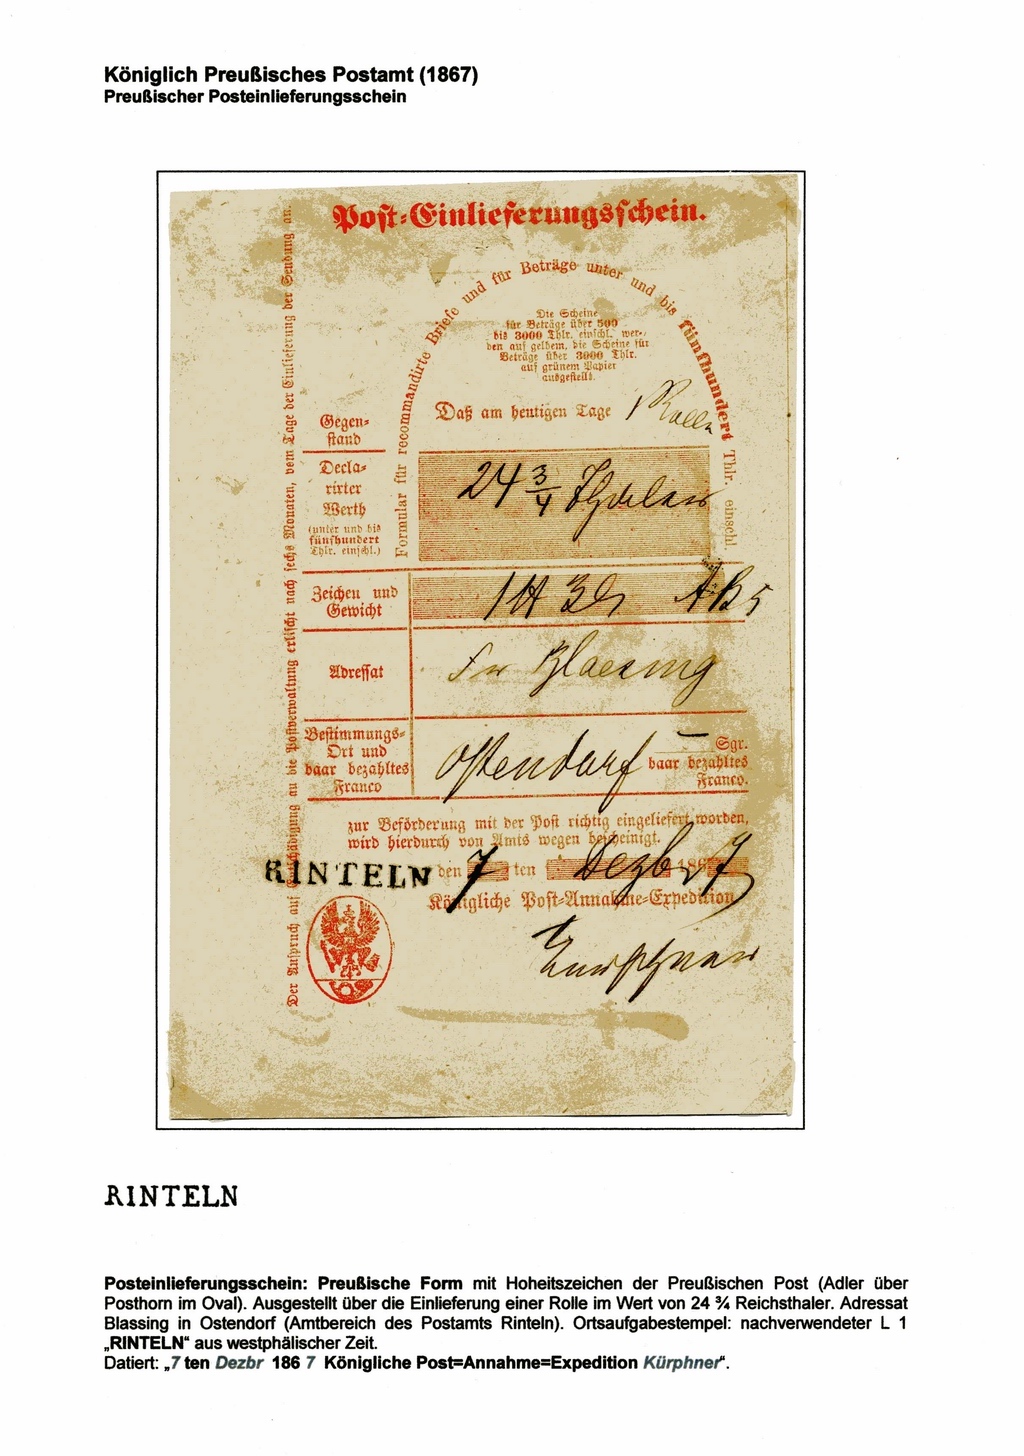 Königlich Preußisches Postamt (1867)
Preußischer Posteinlieferungsschein
Post-Einlieferungsschein.
Der Anspruch auf Entschädigung an die Postverwaltung erlischt nach sechs Monaten, vom Tage der Einlieferung der Sendung an.
Formular für recommandirte Briefe und für Beträge unter und bis fünfhundert Thlr. einschl.
Die Scheine
für Beträge über 500
bis 3000 Thlr. einschl. wer-
den auf gelbem, die Scheine für
Beträge über 3000 Thlr.
auf grünem Papier
ausgestellt.
Gegen-
stand
Daß am heutigen Tage 1 Rolle
Decla-
rirter
Werth
(unter und bis
fünfhundert
Thlr. einschl.)
24 3/4 Thaler
Zeichen und
Gewicht
AB 5
Adressat
Blaesing
Bestimmungs-
Ort und
baar bezahltes
Franco
Ostendorf
Sgr.
baar bezahltes
Franco.
zur Beförderung mit der Post richtig eingeliefert worden,
wird hierdurch von Amts wegen bescheinigt.
RINTELN den 7 ten Dezbr 1867
Königliche Post-Annahme-Expedition
Kürphner
RINTELN
Posteinlieferungsschein: Preußische Form mit Hoheitszeichen der Preußischen Post (Adler über
Posthorn im Oval). Ausgestellt über die Einlieferung einer Rolle im Wert von 24 ¾ Reichsthaler. Adressat
Blassing in Ostendorf (Amtbereich des Postamts Rinteln). Ortsaufgabestempel: nachverwendeter L 1
„RINTELN“ aus westphälischer Zeit.
Datiert: „7 ten Dezbr 186 7 Königliche Post=Annahme=Expedition Kürphner“.